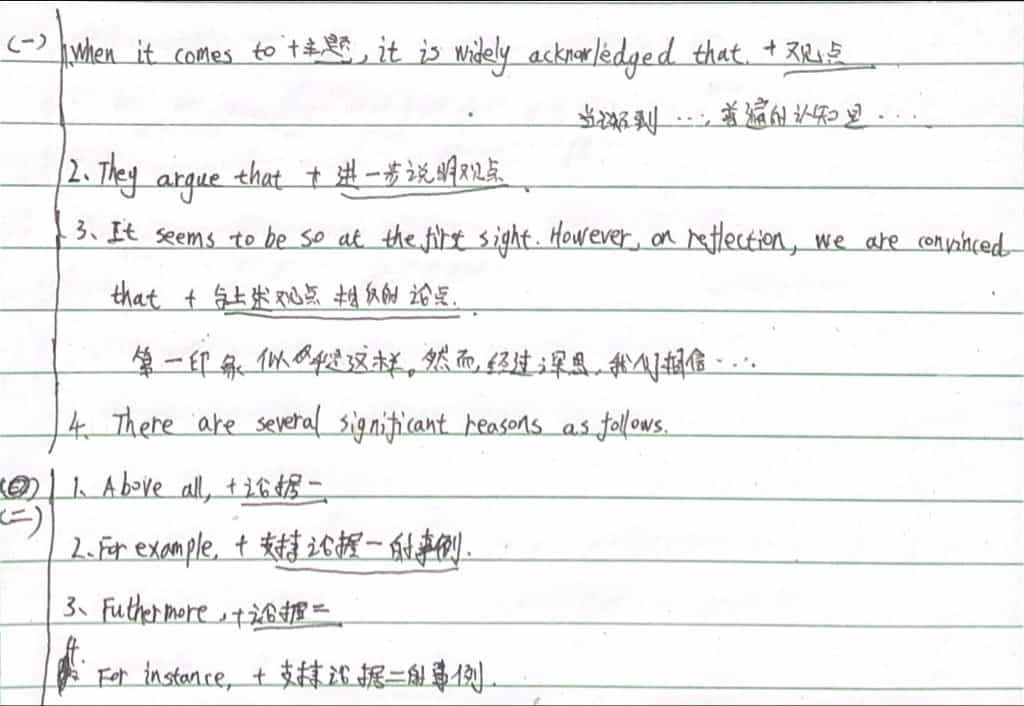 (一) 1. When it comes to +主题, it is widely acknowledged that. + 观点
当谈到 ..., 普遍的认知是 ....
2、They argue that + 进一步说明观点.
3、It seems to be so at the first sight. However, on reflection, we are convinced
that + 与上述观点相反的论点.
第一印象似乎是这样。然而,经过深思,我们相信 ....
4、There are several significant reasons as follows.
(二) 1、Above all, +论据一
2、For example, + 支持论据一的事例.
3、Futhermore, +论据二
4. For instance, + 支持论据二的事例.